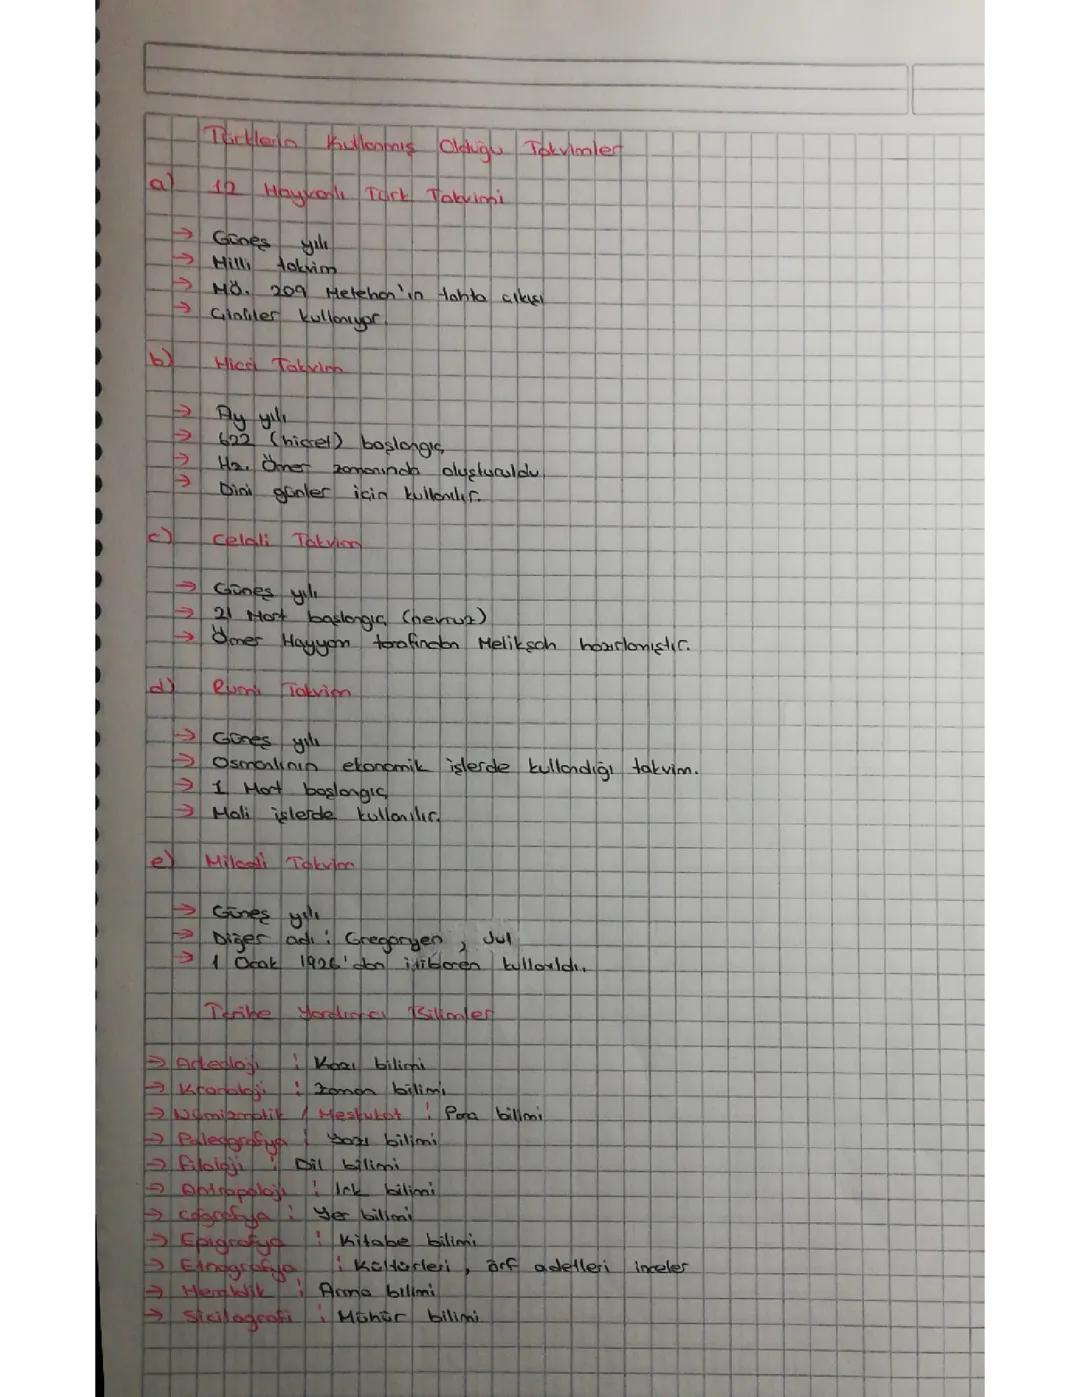 Türklerin Kullanmış Olduğu Takvimler
a) 12 Hayvanlı Türk Takvimi
→ Güneş yılı
→ Milli takvim
→ MÖ. 209 Metehan'ın tahta çıkışı
→ Çinliler kullanıyor.
b) Hicri Takvim
→ Ay yılı
→ 622 (hicret) başlangıç
→ Hz. Ömer zamanında oluşturuldu.
→ Dini günler için kullanılır.
c) Celali Takvim
→ Güneş yılı
→ 21 Mart başlangıç (nevruz)
→ Ömer Hayyam tarafından Melikşah hazırlamıştır.
d) Rumi Takvim
→ Güneş yılı
→ Osmanlının ekonomik işlerde kullandığı takvim.
→ 1 Mart başlangıç
→ Mali işlerde kullanılır.
e) Miladi Takvim
→ Güneş yılı
→ Diğer adı : Gregoryen , Jul
→ 1 Ocak 1926'dan itibaren kullanıldı.
Tarihe Yardımcı Bilimler
→ Arkeoloji : Kazı bilimi
→ Kronoloji : Zaman bilimi
→ Nümizmatik / Meskukat : Para bilimi
→ Paleografya : Yazı bilimi
→ Filoloji : Dil bilimi
→ Antropoloji : Irk bilimi
→ Coğrafya : Yer bilimi
→ Epigrafya : Kitabe bilimi
→ Etnografya : Kültürleri , örf adetleri inceler
→ Heraldik : Arma bilimi
→ Sicilografi : Mühür bilimi